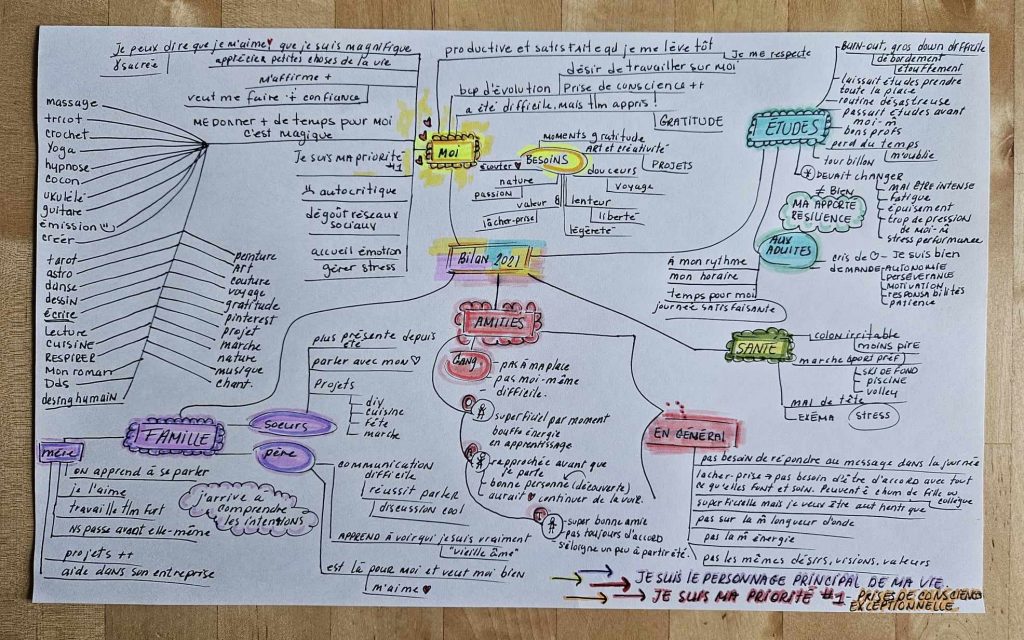 Je peux dire que je m'aime♥ que je suis magnifique
& sacrée
apprécier petites choses de la vie
M'affirme +
veut me faire + confiance
me donner + de temps pour moi
c'est magique
massage
tricot
crochet
Yoga
hypnose
cocon
ukulélé
guitare
émission
créer
tarot
astro
danse
dessin
écrire
Lecture
cuisine
RESPIRER
Mon roman
Dds
desing humain
peinture
Art
couture
voyage
gratitude
pinterest
projet
marche
nature
musique
chant.
Je suis ma priorité
#1
autocritique
dégoût réseaux
sociaux
accueil émotion
gérer stress
productive et satisfaite qd je me lève tôt
Je me respecte
désir de travailler sur moi
bcp d'évolution
Prise de conscience ++
a été difficile, mais tlm appris !
GRATITUDE
MOI
écouter ♥
BESOINS
moments gratitude
ART et créativité
PROJETS
douceurs
voyage
nature
passion
valeur
lâcher-prise
lenteur
liberté
légèreté
Bilan 2021
ÉTUDES
Burn-out, gros down difficile
débordement
étouffement
laissait études prendre
toute la place
routine désastreuse
passait études avant
moi-m̂
bons profs
perd du temps
m'oublie
tourbillon
Devait changer
≠ Bien
mal être intense
fatigue
épuisement
trop de pression
de moi-m̂
stress performance
MA APPORTE
RESILIENCE
AUX
ADULTES
cris de ♡ - Je suis bien
demande
AUTONOMIE
PERSÉVÉRANCE
MOTIVATION
RESPONSABILITÉS
PATIENCE
À mon rythme
mon horaire
temps pour moi
journée satisfaisante
SANTÉ
colon irritable
moins pire
marche (sport préf)
SKI DE FOND
piscine
volley
mal de tête
EXÉMA
STRESS
AMITIÉS
Gang
pas à ma place
pas moi-même
difficile.
superficiel par moment
bouffe énergie
en apprentissage
rapprochée avant que
je parte
bonne personne (découverte)
aurait ♥ continuer de la voir.
super bonne amie
pas toujours d'accord
s'éloigne un peu à partir été.
EN GÉNÉRAL
pas besoin de répondre au message dans la journée
lacher-prise → pas besoin d'être d'accord avec tout
ce qu'elles font et suin. Peuvent ê chum de fille ou
collègue
superficielle mais je veux être authentique
pas sur la m̂ longueur d'onde
pas la m̂ énergie
pas les mêmes désirs, visions, valeurs
FAMILLE
soeurs
plus présente depuis
été
parler avec mon ♡
Projets
diy
cuisine
fête
marche
père
communication
difficile
réussit parler
discussion cool
APPREND à voir qui je suis vraiment
"vieille âme"
est là pour moi et veut moi bien
m'aime ♥
j'arrive à
comprendre
les intentions
mère
on apprend à se parler
je l'aime
travaille tlm fort
ns passe avant elle-même
projets ++
aide dans son entreprise
JE SUIS LE PERSONNAGE PRINCIPAL DE MA VIE.
JE SUIS MA PRIORITÉ #1 - PRISE DE CONSCIENCE
EXCEPTIONNELLE.